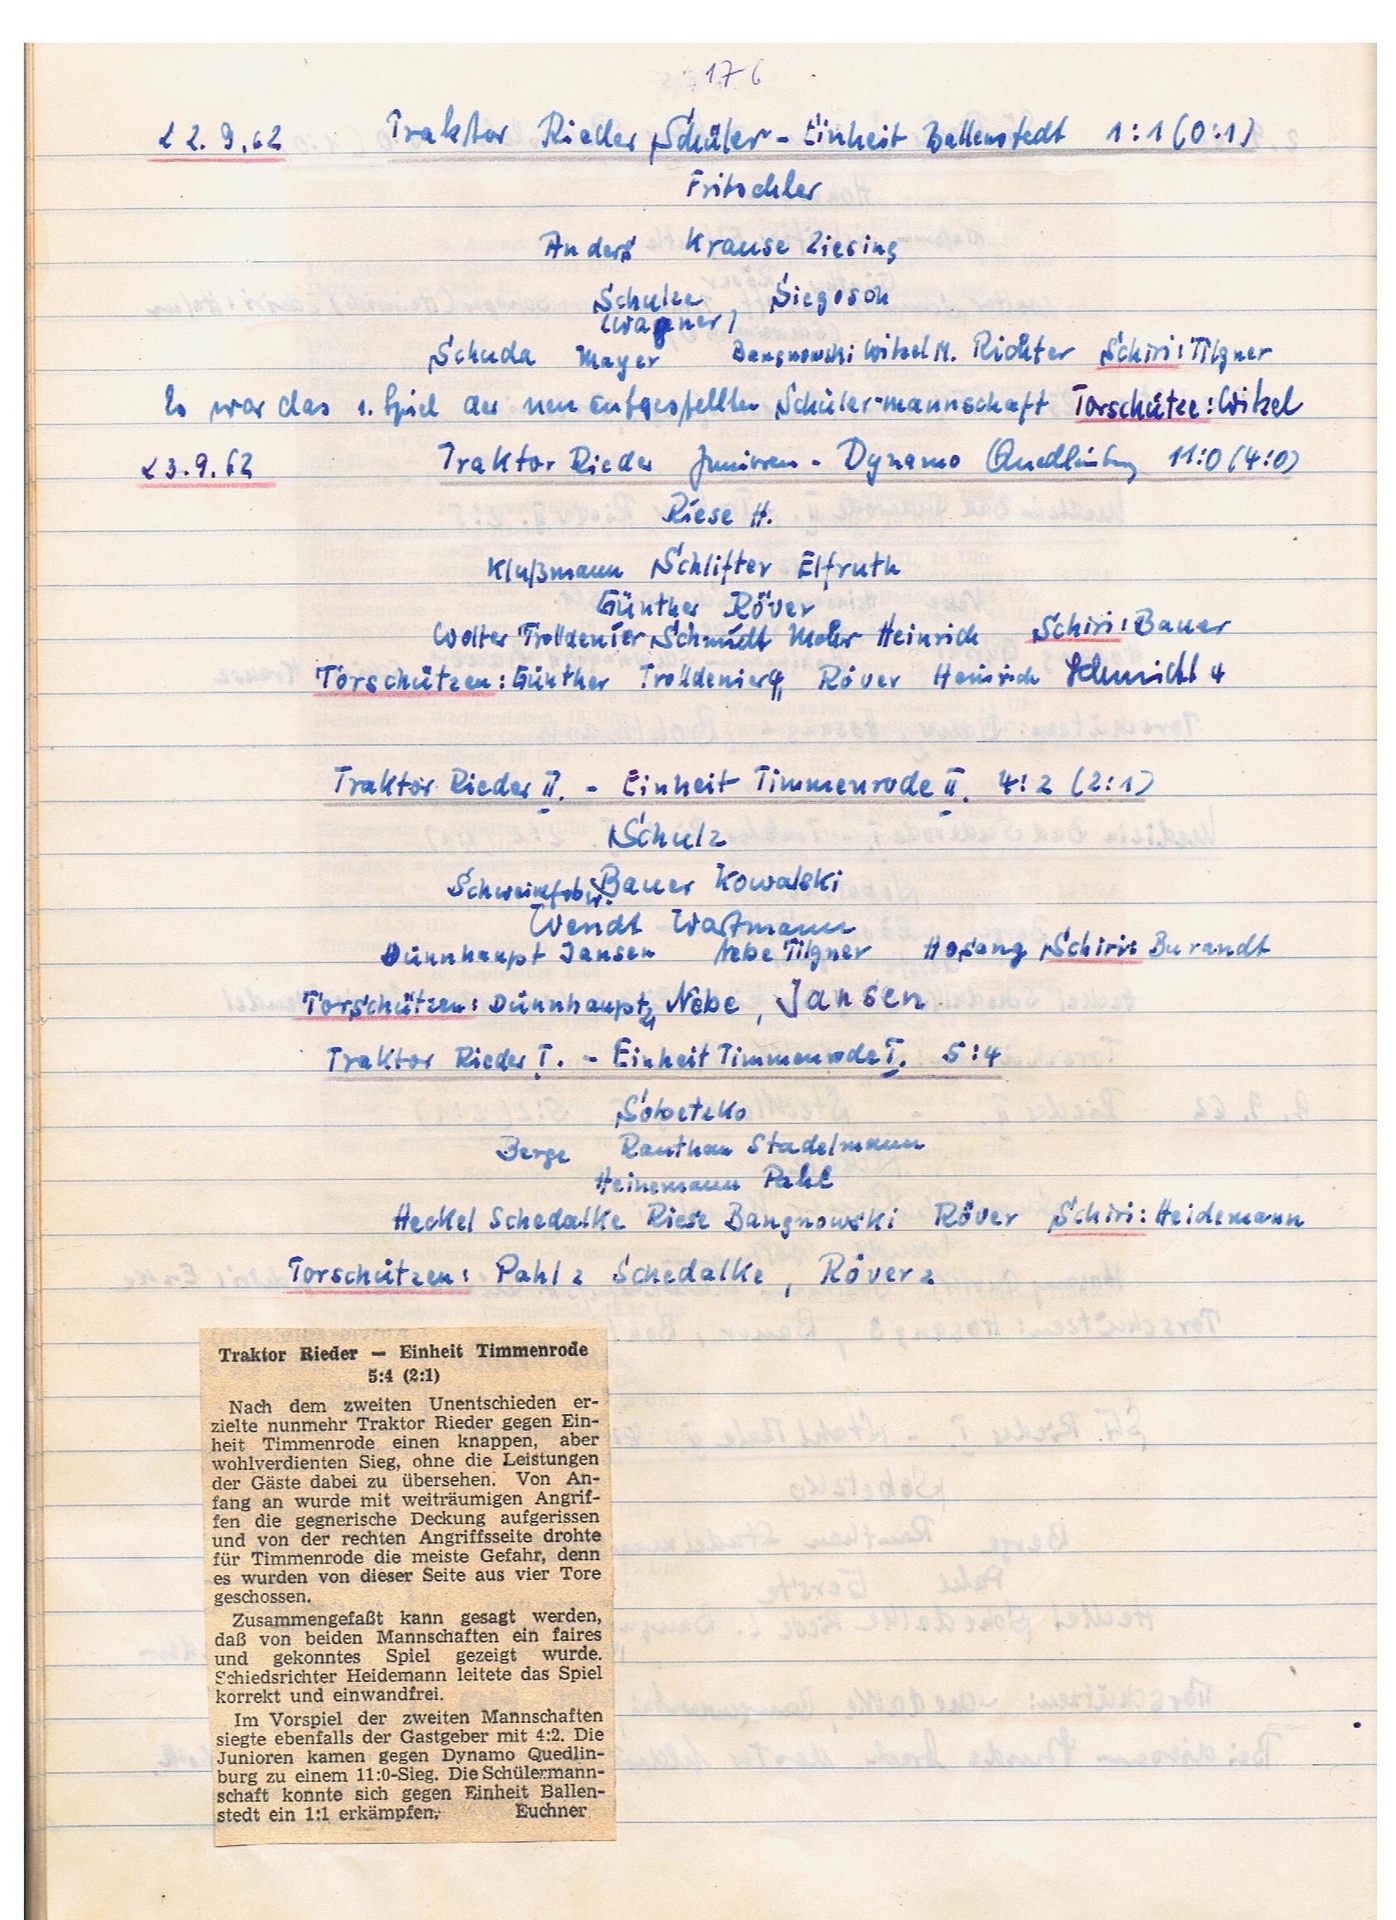 176
22.9.62 Traktor Rieder Schüler - Einheit Ballenstedt 1:1 (0:1)
Fritschler
Anders Krause Ziesing
Schulze Siegosch
(Wagner)
Schuda Mayer Bangnowski Witzel M. Richter Schiri: Tilgner
Es war das 1. Spiel der neu aufgestellten Schüler-mannschaft Torschütze: Witzel
23.9.62 Traktor Rieder Junioren - Dynamo Quedlinburg 11:0 (4:0)
Riese H.
Klußmann Schlifter Elfruth
Günther Röver
Wolter Trolldenier Schmidt Heinrich Schiri: Bauer
Torschützen: Günther Trolldenier 4, Röver Heinrich Schmidt 4
Traktor Rieder II. - Einheit Timmenrode II. 4:2 (2:1)
Schulz
Bauer Kowalski
Wendt Waßmann
Dünnhaupt Jansen Nebe Tilgner Hosang Schiri: Burandt
Torschützen: Dünnhaupt 2, Nebe, Jansen
Traktor Rieder I. - Einheit Timmenrode I. 5:4
Sobetzko
Berge Rauthan Stadelmann
Heinemann Pahl
Heckel Schedalke Riese Bangnowski Röver Schiri: Heidemann
Torschützen: Pahl 2 Schedalke, Röver 2
Traktor Rieder — Einheit Timmenrode
5:4 (2:1)
Nach dem zweiten Unentschieden er-
zielte nunmehr Traktor Rieder gegen Ein-
heit Timmenrode einen knappen, aber
wohlverdienten Sieg, ohne die Leistungen
der Gäste dabei zu übersehen. Von An-
fang an wurde mit weiträumigen Angrif-
fen die gegnerische Deckung aufgerissen
und von der rechten Angriffsseite drohte
für Timmenrode die meiste Gefahr, denn
es wurden von dieser Seite aus vier Tore
geschossen.
Zusammengefaßt kann gesagt werden,
daß von beiden Mannschaften ein faires
und gekonntes Spiel gezeigt wurde.
Schiedsrichter Heidemann leitete das Spiel
korrekt und einwandfrei.
Im Vorspiel der zweiten Mannschaften
siegte ebenfalls der Gastgeber mit 4:2. Die
Junioren kamen gegen Dynamo Quedlin-
burg zu einem 11:0-Sieg. Die Schülermann-
schaft konnte sich gegen Einheit Ballen-
stedt ein 1:1 erkämpfen. Euchner